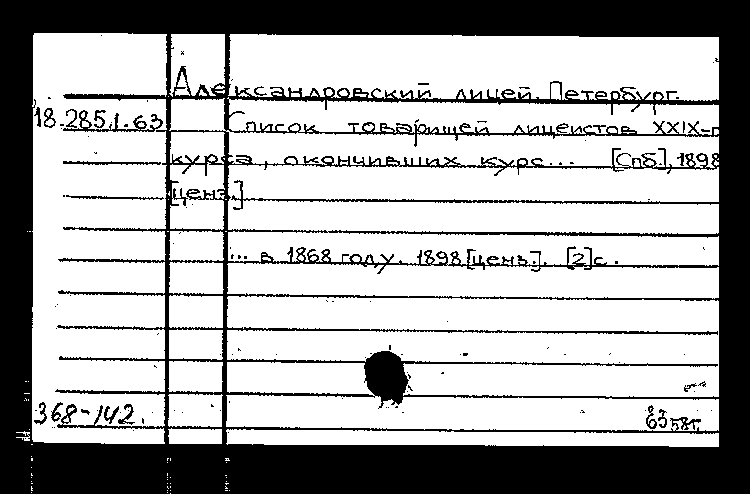 Александровский лицей. Петербург.
18.285.1.63
Список товарищей лицеистов XXIX-г
курса, окончивших курс... [Спб.], 1898
[ценз.]
... в 1868 году. 1898 [ценз.]. [2] с.
368-142.